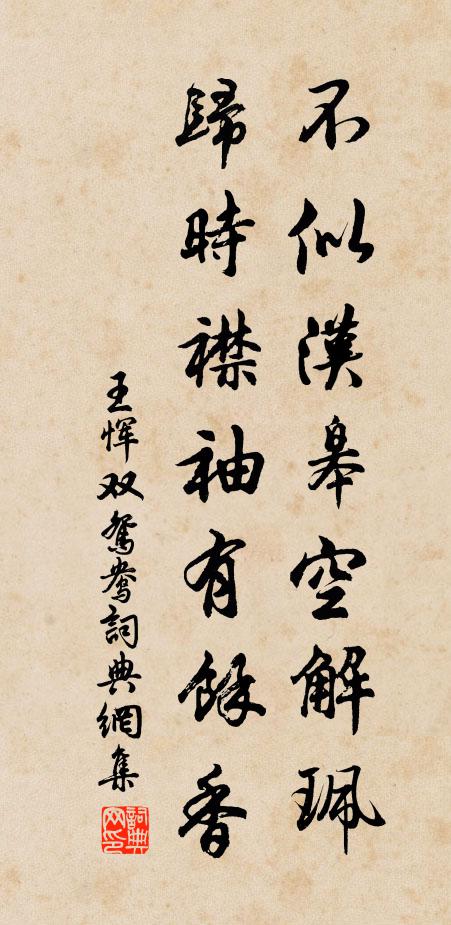 不似漢皋空解珮
歸時襟袖有餘香
王惲双鴛鴦詞典網集
詞典网印